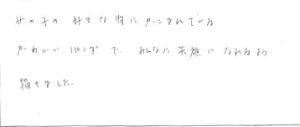 女の子の好きな物にかこまれている
かわいいパンダで、みんなに笑顔になれるよう
描きました。